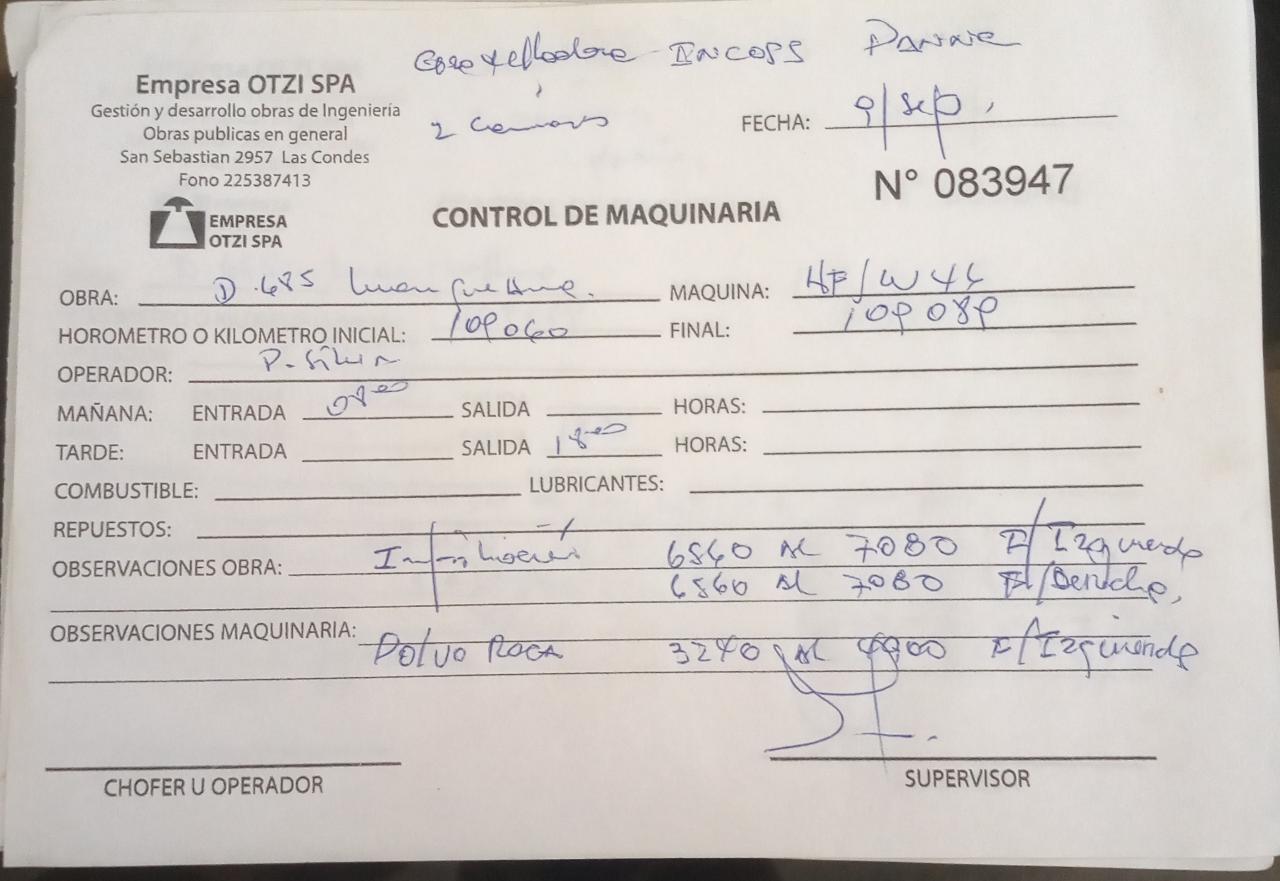 INCOSS PANNE
2
Empresa OTZI SPA
Gestión y desarrollo obras de Ingeniería
Obras publicas en general
San Sebastian 2957 Las Condes
Fono 225387413
EMPRESA
OTZI SPA
FECHA: 9/Sep,
N° 083947
CONTROL DE MAQUINARIA
OBRA: D.
MAQUINA:
HOROMETRO O KILOMETRO INICIAL: 109060
FINAL: 109089
OPERADOR: P. Silva
MAÑANA: ENTRADA 08 00 SALIDA HORAS:
TARDE: ENTRADA SALIDA 18 00 HORAS:
COMBUSTIBLE: LUBRICANTES:
REPUESTOS:
OBSERVACIONES OBRA: 6860 AL 7080 F/Izquierda
6860 AL 7080 F/Derecha,
OBSERVACIONES MAQUINARIA: Polvo ROCA 3240 AL F/Izquierda
CHOFER U OPERADOR
SUPERVISOR